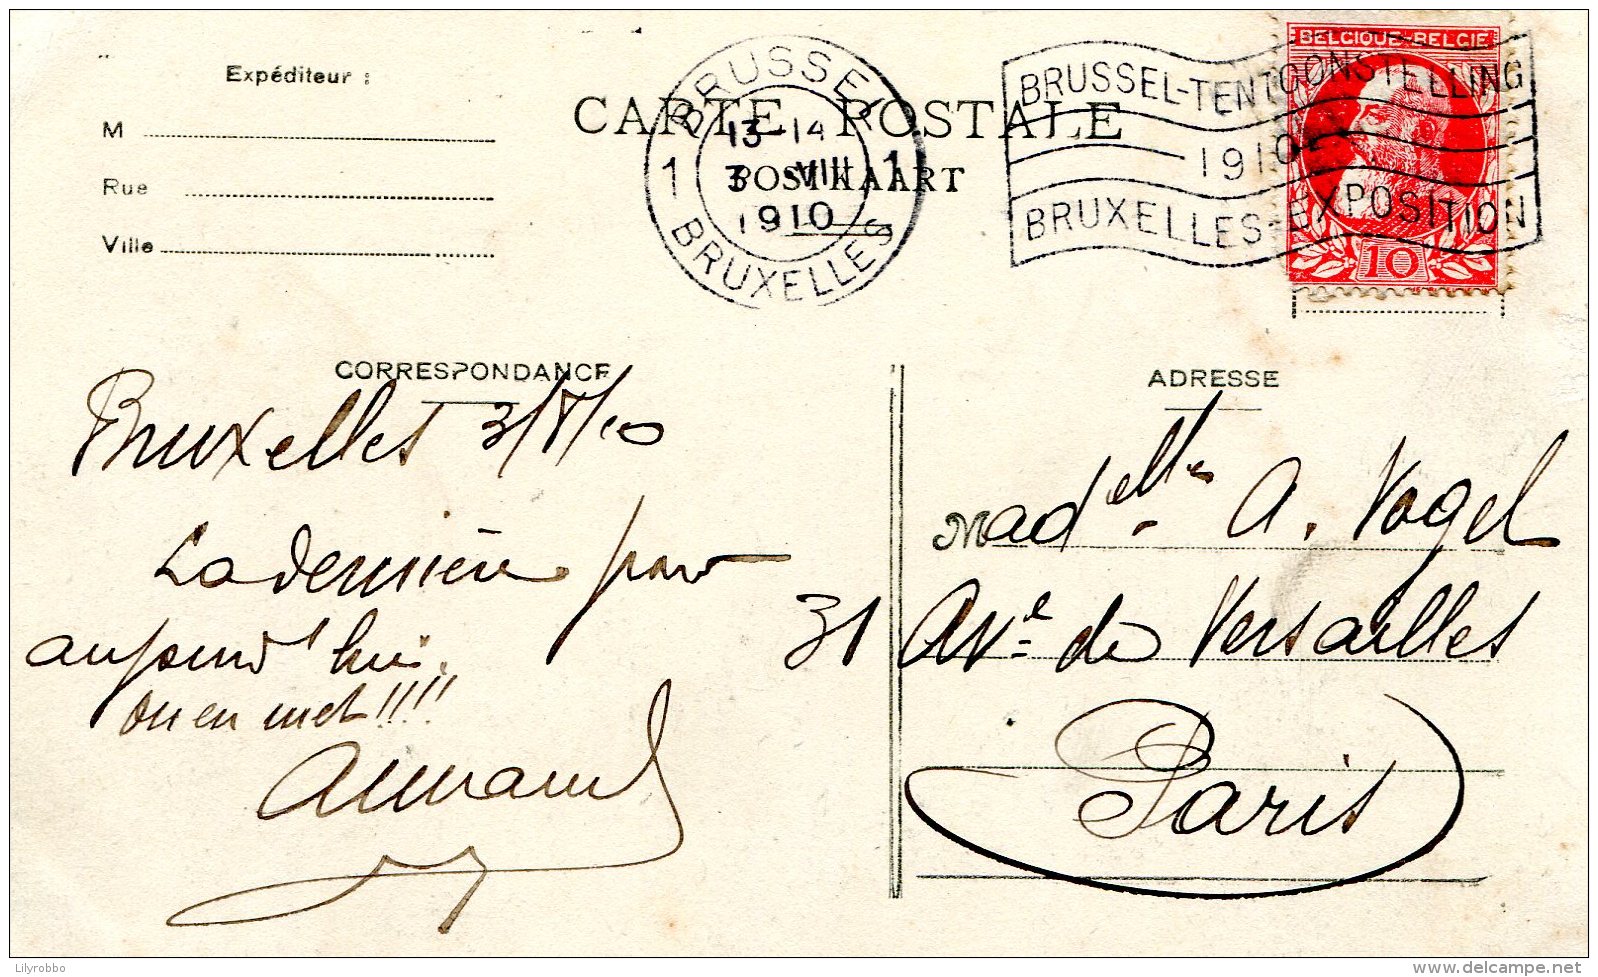 Expéditeur :
M
Rue
Ville
CARTE POSTALE
POSTKAART
BRUSSEL
13-14
1 3 VIII 1
1910
BRUXELLES
BRUSSEL-TENTOONSTELLING
1910
BRUXELLES-EXPOSITION
BELGIQUE-BELGIE
10
CORRESPONDANCE
Bruxelles 3/8/10
La dernière pour
aujourd'hui.
on en met!!!!
Armand
ADRESSE
Madelle A. Vogel
31 Ave de Versailles
Paris
Lilyrobbo
www.delcampe.net